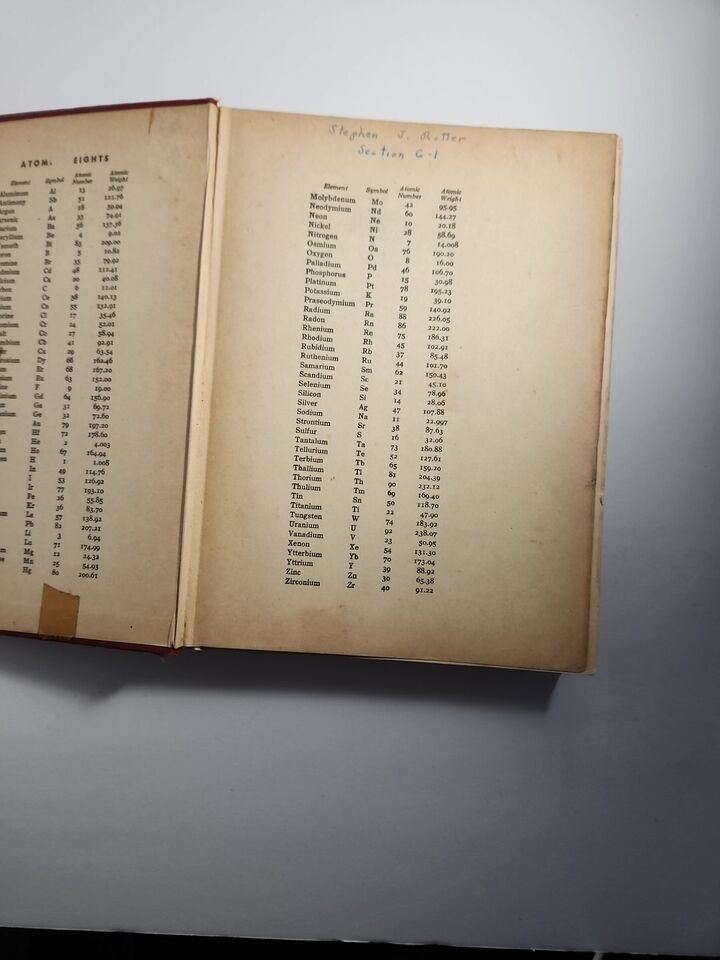 ATOM. EIGHTS
Element Symbol Atomic Number Atomic Weight
Aluminum Al 13 26.97
Antimony Sb 51 121.76
Argon A 18 39.94
rsenic As 33 74.91
arium Ba 56 137.36
eryllium Be 4 9.02
smuth Bi 83 209.00
oron B 5 10.82
omine Br 35 79.92
dmium Cd 48 112.41
lcium Ca 20 40.08
rbon C 6 12.01
rium Ce 58 140.13
sium Cs 55 132.91
orine Cl 17 35.46
omium Cr 24 52.01
alt Co 27 58.94
mbium Cb 41 92.91
er Cu 29 63.54
rosium Dy 66 162.46
um Er 68 167.20
um Eu 63 152.00
ine F 9 19.00
inium Gd 64 156.90
m Ga 31 69.72
nium Ge 32 72.60
Au 79 197.20
m Hf 72 178.60
He 2 4.003
um Ho 67 164.94
en H 1 1.008
In 49 114.76
I 53 126.92
Ir 77 193.10
Fe 26 55.85
Kr 36 83.70
um La 57 138.92
Pb 82 207.21
Li 3 6.94
Lu 71 174.99
um Mg 12 24.32
se Mn 25 54.93
Hg 80 200.61
Stephen J. Rotter
Section G-1
Element Symbol Atomic Number Atomic Weight
Molybdenum Mo 42 95.95
Neodymium Nd 60 144.27
Neon Ne 10 20.18
Nickel Ni 28 58.69
Nitrogen N 7 14.008
Osmium Os 76 190.20
Oxygen O 8 16.00
Palladium Pd 46 106.70
Phosphorus P 15 30.98
Platinum Pt 78 195.23
Potassium K 19 39.10
Praseodymium Pr 59 140.92
Radium Ra 88 226.05
Radon Rn 86 222.00
Rhenium Re 75 186.31
Rhodium Rh 45 102.91
Rubidium Rb 37 85.48
Ruthenium Ru 44 101.70
Samarium Sm 62 150.43
Scandium Sc 21 45.10
Selenium Se 34 78.96
Silicon Si 14 28.06
Silver Ag 47 107.88
Sodium Na 11 22.997
Strontium Sr 38 87.63
Sulfur S 16 32.06
Tantalum Ta 73 180.88
Tellurium Te 52 127.61
Terbium Tb 65 159.20
Thallium Tl 81 204.39
Thorium Th 90 232.12
Thulium Tm 69 169.40
Tin Sn 50 118.70
Titanium Ti 22 47.90
Tungsten W 74 183.92
Uranium U 92 238.07
Vanadium V 23 50.95
Xenon Xe 54 131.30
Ytterbium Yb 70 173.04
Yttrium Y 39 88.92
Zinc Zn 30 65.38
Zirconium Zr 40 91.22